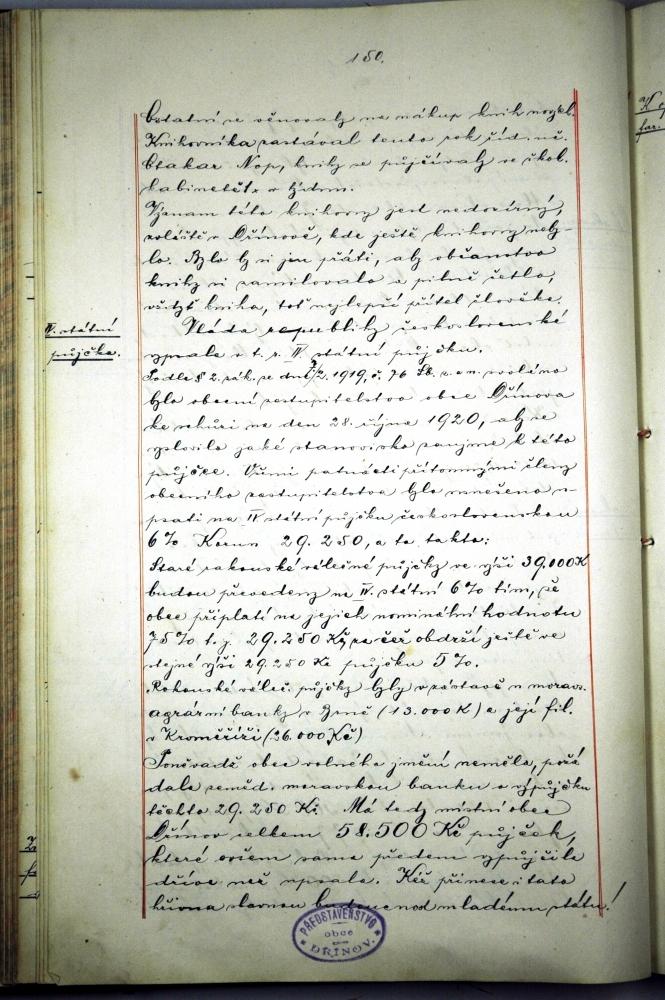 150.
Ostatní se věnovaly na nákup knih nových.
Knihovníka zastával tento rok říd. uč.
Otakar Nop, knihy se půjčovaly ve škol.
kabinetě v týdnu.
Význam této knihovny jest nedozírný,
zvláště v Dřínově, kde ještě knihovny neby-
lo. Bylo by si jen přáti, aby občanstvo
knihy si zamilovalo a pilně četlo,
vždyť kniha, toť nejlepší přítel člověka.
IV. státní
půjčka.
Vláda republiky československé
vypsala v t. r. IV státní půjčku.
Podle § 2. zák. ze dne 7/2. 1919, č. 76 Sb. z. a n. svoláno
bylo obecní zastupitelstvo obce Dřínova
ke schůzi na den 28. října 1920, aby se
vyslovilo jaké stanovisko zaujme k této
půjčce. Všemi patnácti přítomnými členy
obecního zastupitelstva bylo usneseno u-
psati na IV státní půjčku československou
6% Korun 29.250, a to takto:
Staré rakouské válečné půjčky ve výši 39.000 K
budou převedeny na IV. státní 6% tím, že
obec připlatí na jejich nominální hodnotu
75% t. j. 29.250 Kč, začež obdrží ještě ve
stejné výši 29.250 Kč půjčku 5%.
Rakouské váleč. půjčky byly v zástavě u morav.
agrární banky v Brně (13.000 K) a její fil.
v Kroměříži (26.000 Kč)
Poněvadž obec volného jmění neměla, požá
dala zeměd. moravskou banku o výpůjčku
těchto 29.250 Kč. Má tedy místní obec
Dřínov celkem 58.500 Kč půjček,
které ovšem sama předem vypůjčila
dříve než upsala. Kéž přinese i tato
hřivna slavnou budoucnost mladému státu!
PŘEDSTAVENSTVO
obce
DŘÍNOV.